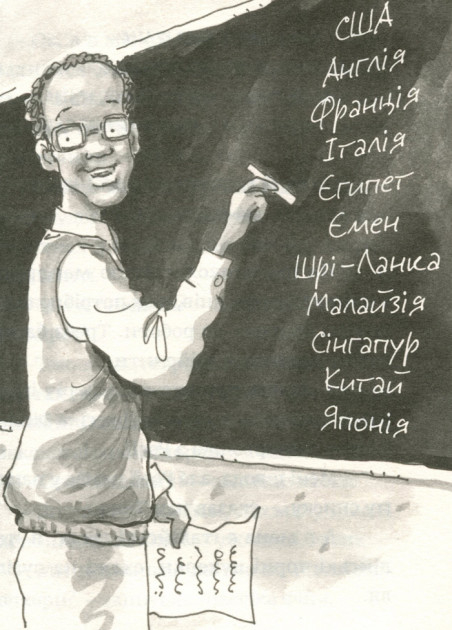 США
Англія
Франція
Італія
Єгипет
Ємен
Шрі-Ланка
Малайзія
Сінгапур
Китай
Японія